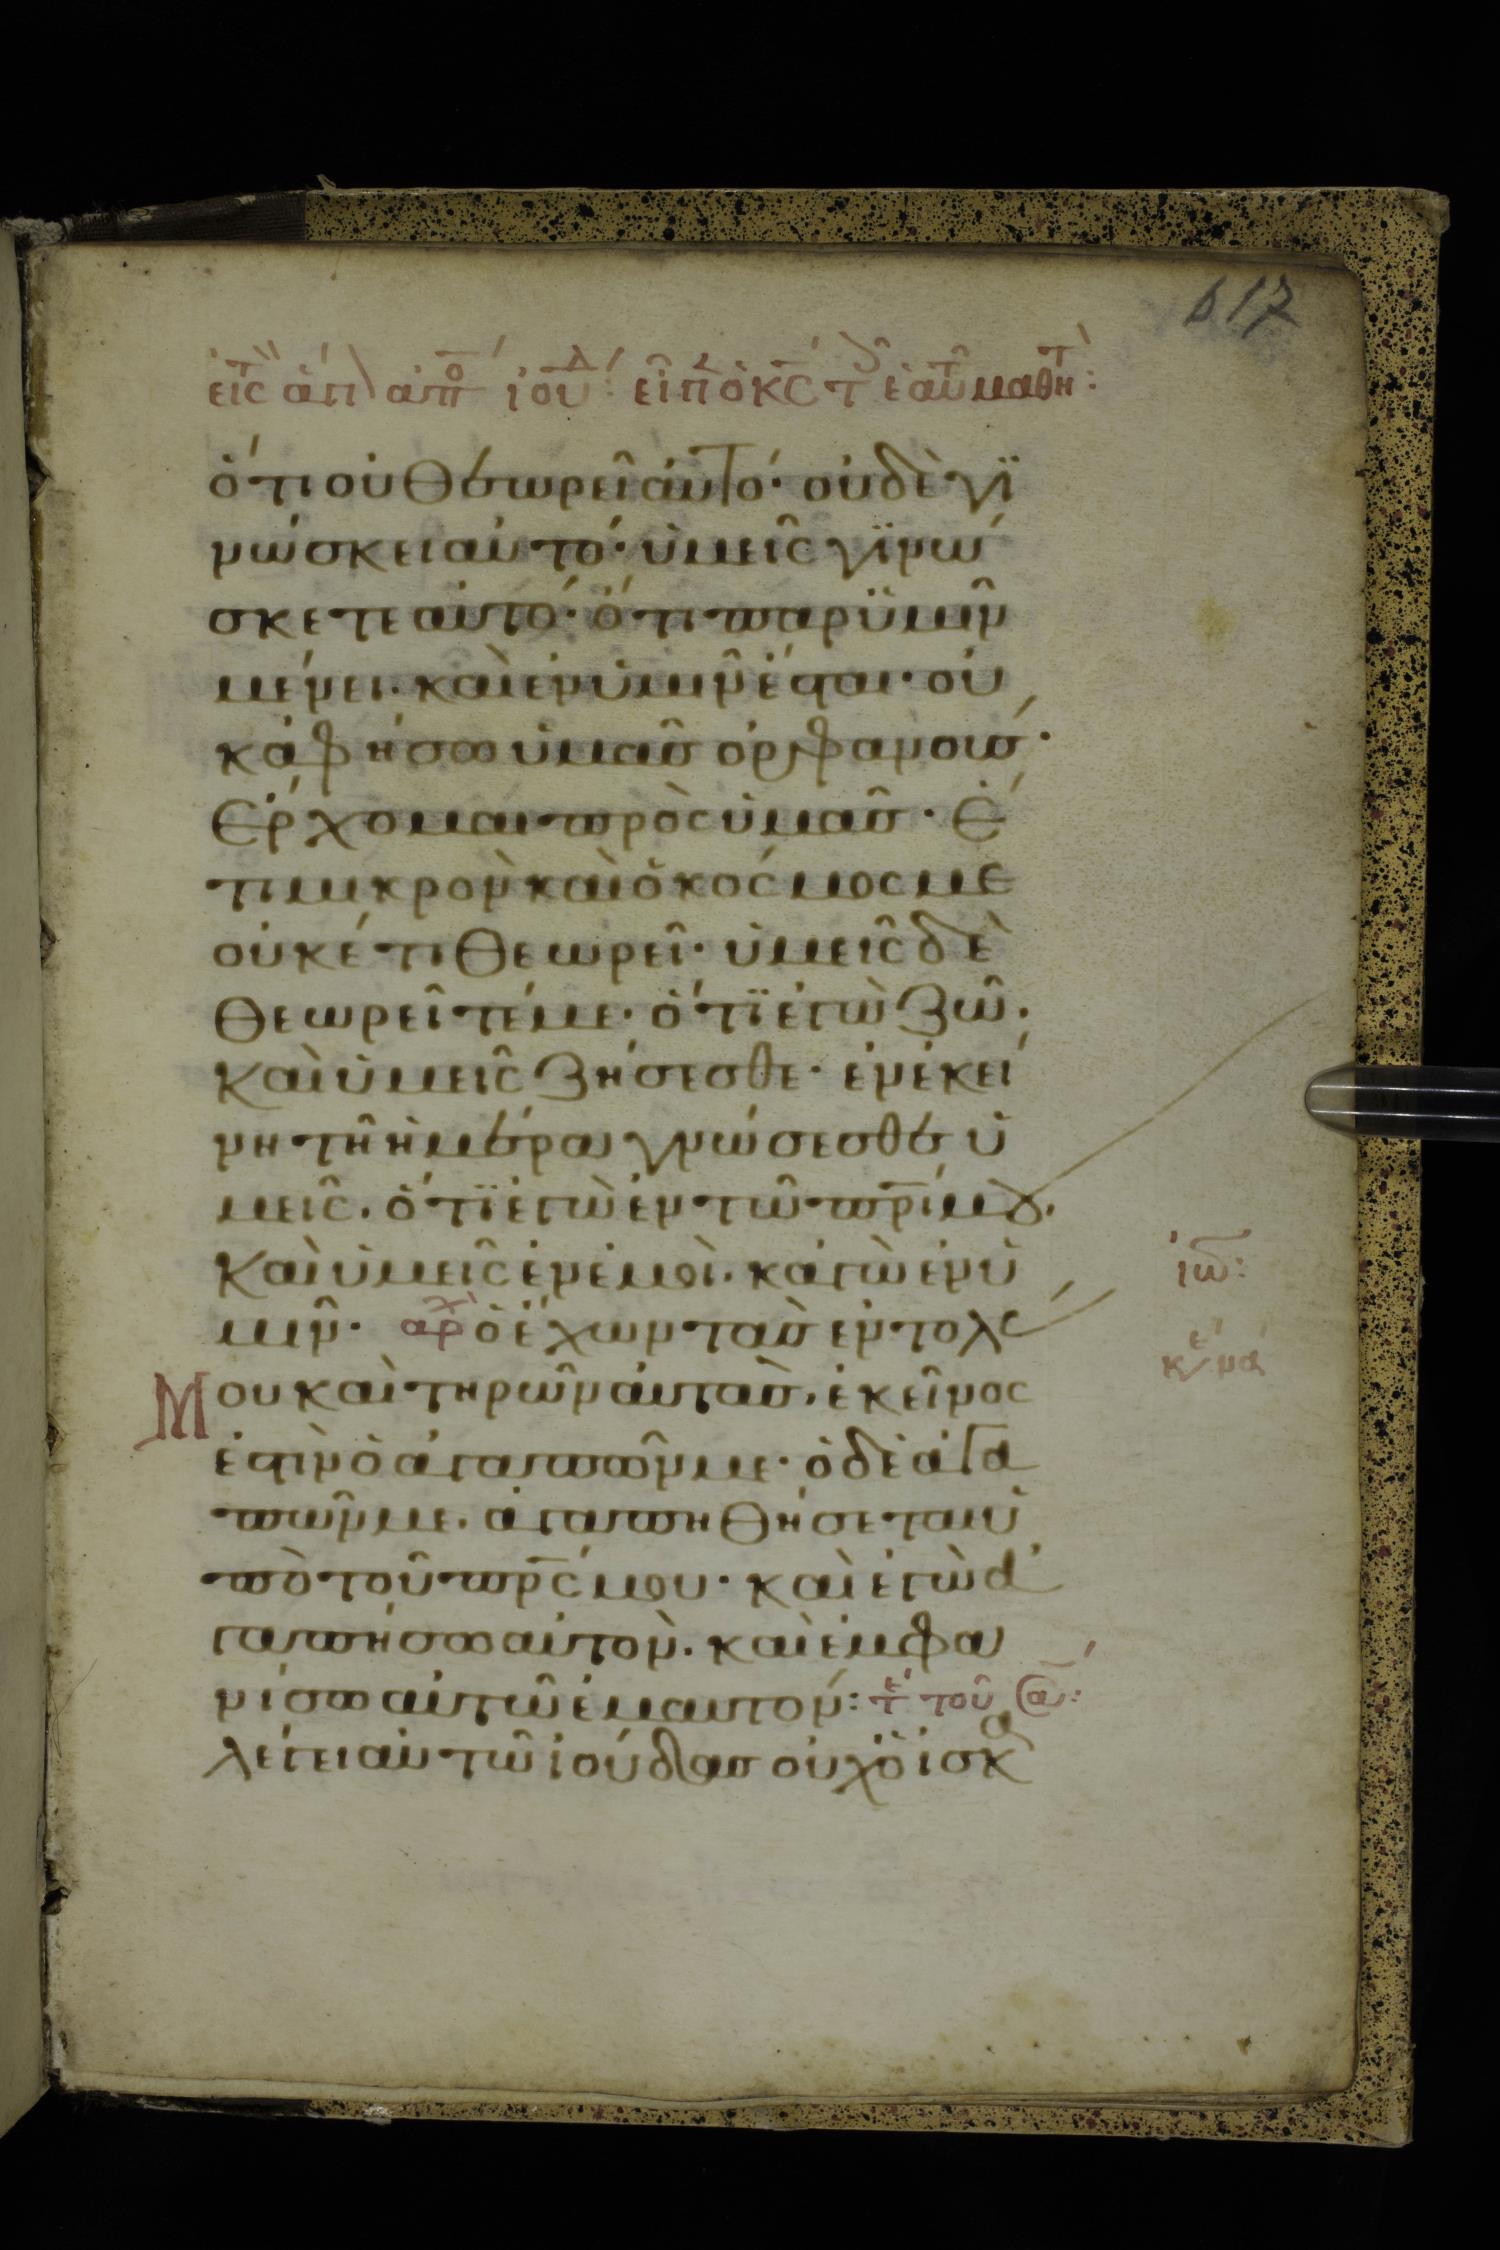 617
ὅτι οὐ θεωρεῖ ἀυτό· οὐδὲ γϊ
νώσκει αὐτό· ὑμεῖς γϊνώ
σκετε αὐτό· ὅτι παρ ϋμῖν
μένει· καὶ ἐν ὑμῖν ἔσται· οὐ
κ ἀφήσω ὑμᾶς ὀρφανούσ·
Ἔρχομαι πρὸς ὑμᾶς· Ἔ
τι μικρὸν καὶ ὁ κόσμος με
οὐκέτι θεωρεῖ· ὑμεῖς δὲ
θεωρεῖτέ με· ὅτϊ ἐγὼ ζῶ·
Καὶ ὑμεῖς ζήσεσθε· ἐν ἐκεί
νη τῆ ἡμέρα γνώσεσθε ὑ
μεῖς· ὅτϊ ἐγὼ ἐν τῶ πρί μου·
Καὶ ὑμεῖς ἐν ἐμοὶ· κἀγὼ ἐν ὑ
μῖν· αρχ ὁ ἔχων τὰς ἐντολὰς
ἰω:
Μου καὶ τηρῶν ἀυτὰς· ἐκεῖνος
ἐστὶν ὁ ἀγαπῶν με· ὁ δὲ ἀγα
πῶν με· ἀγαπηθήσεται ὑ
πὸ τοῦ πρς μου· καὶ ἐγὼ ἀ
γαπήσω αὐτὸν· καὶ ἐμφα
νίσω αὐτῶ ἐμαυτόν: τε τοῦ
λέγει αὐτῶ ἰούδας οὐχ ὁ ἰσκα